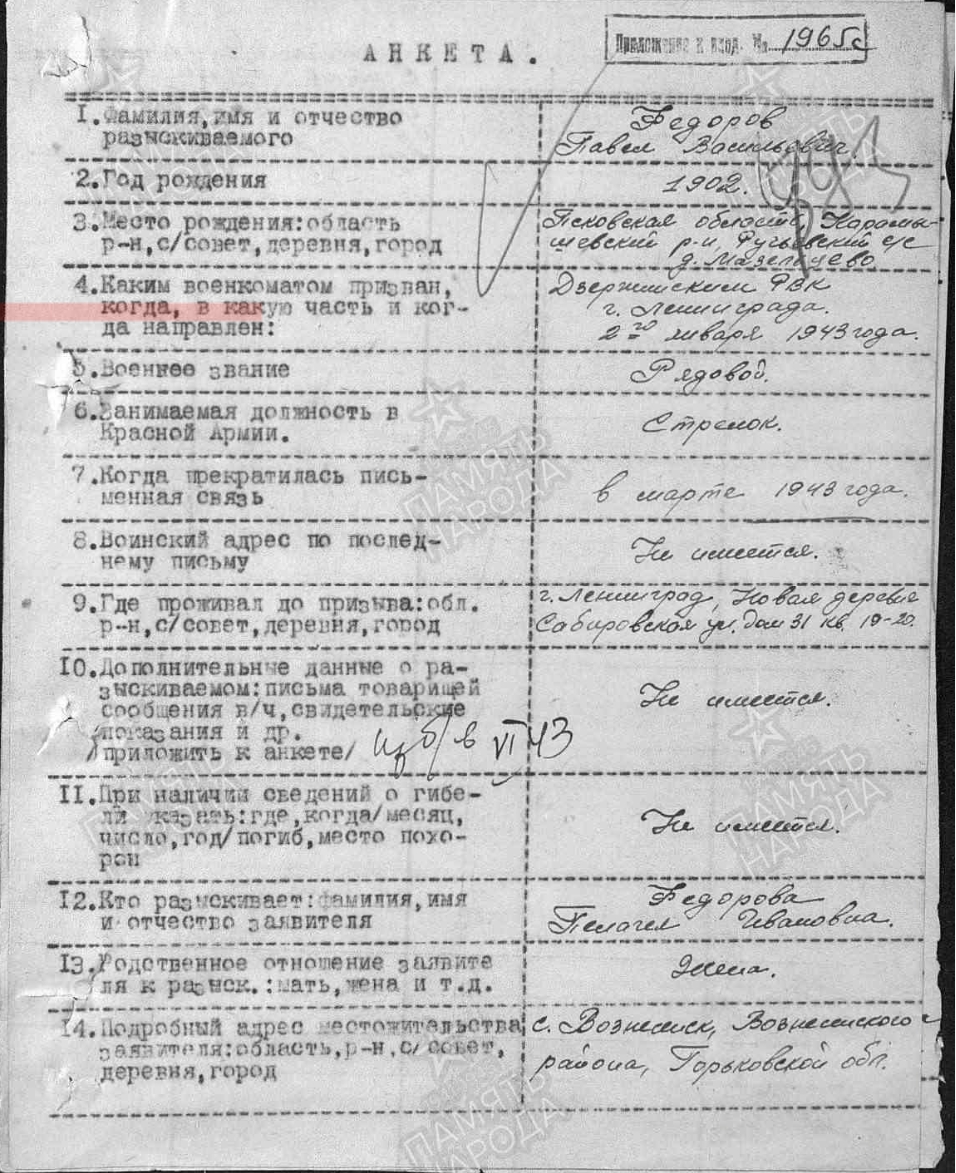 АНКЕТА.
Приложение к вход. № 1965с
1. Фамилия, имя и отчество
разыскиваемого
Федоров
Павел Васильевич.
2. Год рождения
1902.
3. Место рождения: область
р-н, с/совет, деревня, город
Псковская область, Карамы-
шевский р-н, Ручьевский с/с
д.
4. Каким военкоматом призван,
когда, в какую часть и ког-
да направлен:
Дзержинским РВК
г. Ленинграда.
2го января 1943 года.
5. Военнее звание
Рядовой.
6. Занимаемая должность в
Красной Армии.
Стрелок.
7. Когда прекратилась пись-
менная связь
в марте 1943 года.
8. Воинский адрес по послед-
нему письму
Не имеется.
9. Где проживал до призыва: обл.
р-н, с/совет, деревня, город
г. Ленинград, Новая деревня
Сабировская ул. дом 31 кв. 19-20.
10. Дополнительные данные о ра-
зыскиваемом: письма товарищей
сообщения в/ч, свидетельские
показания и др.
/приложить к анкете/
Не имеется.
б/в VI 43
11. При наличии сведений о гибе-
ли указать: где, когда/месяц,
число, год/погиб, место похо-
рон
Не имеется.
12. Кто разыскивает: фамилия, имя
и отчество заявителя
Федорова
Пелагея Ивановна.
13. Родственное отношение заявите
ля к разыск.: мать, жена и т.д.
Жена.
14. Подробный адрес местожительства
заявителя: область, р-н, с/совет,
деревня, город
с. Вознесенск, Вознесенского
района, Горьковской обл.
ПАМЯТЬ
НАРОДА